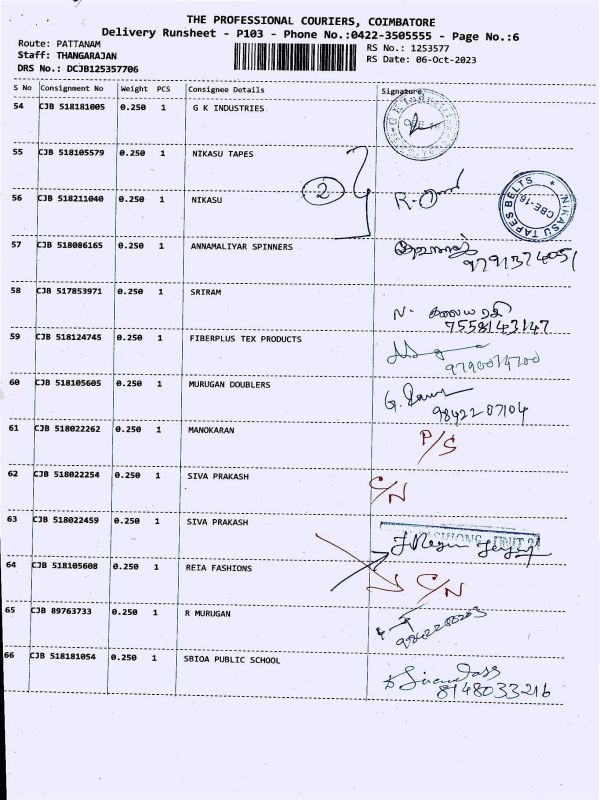 THE PROFESSIONAL COURIERS, COIMBATORE
Delivery Runsheet - P103 - Phone No.:0422-3505555 - Page No.:6
Route: PATTANAM
RS No.: 1253577
Staff: THANGARAJAN
RS Date: 06-Oct-2023
DRS No.: DCJB125357706
S No Consignment No Weight PCS Consignee Details Signature
54 CJB 518181005 0.250 1 G K INDUSTRIES
55 CJB 518105579 0.250 1 NIKASU TAPES
2
56 CJB 518211040 0.250 1 NIKASU
NIKASU TAPES BELTS CBE-16
57 CJB 518086165 0.250 1 ANNAMALIYAR SPINNERS
9791374051
58 CJB 517853971 0.250 1 SRIRAM
N-
7558143147
59 CJB 518124745 0.250 1 FIBERPLUS TEX PRODUCTS
60 CJB 518105605 0.250 1 MURUGAN DOUBLERS
98422 07104
61 CJB 518022262 0.250 1 MANOKARAN P/S
62 CJB 518022254 0.250 1 SIVA PRAKASH C/N
63 CJB 518022459 0.250 1 SIVA PRAKASH
64 CJB 518105608 0.250 1 REIA FASHIONS C/N
65 CJB 89763733 0.250 1 R MURUGAN
66 CJB 518181054 0.250 1 SBIOA PUBLIC SCHOOL
8148033216